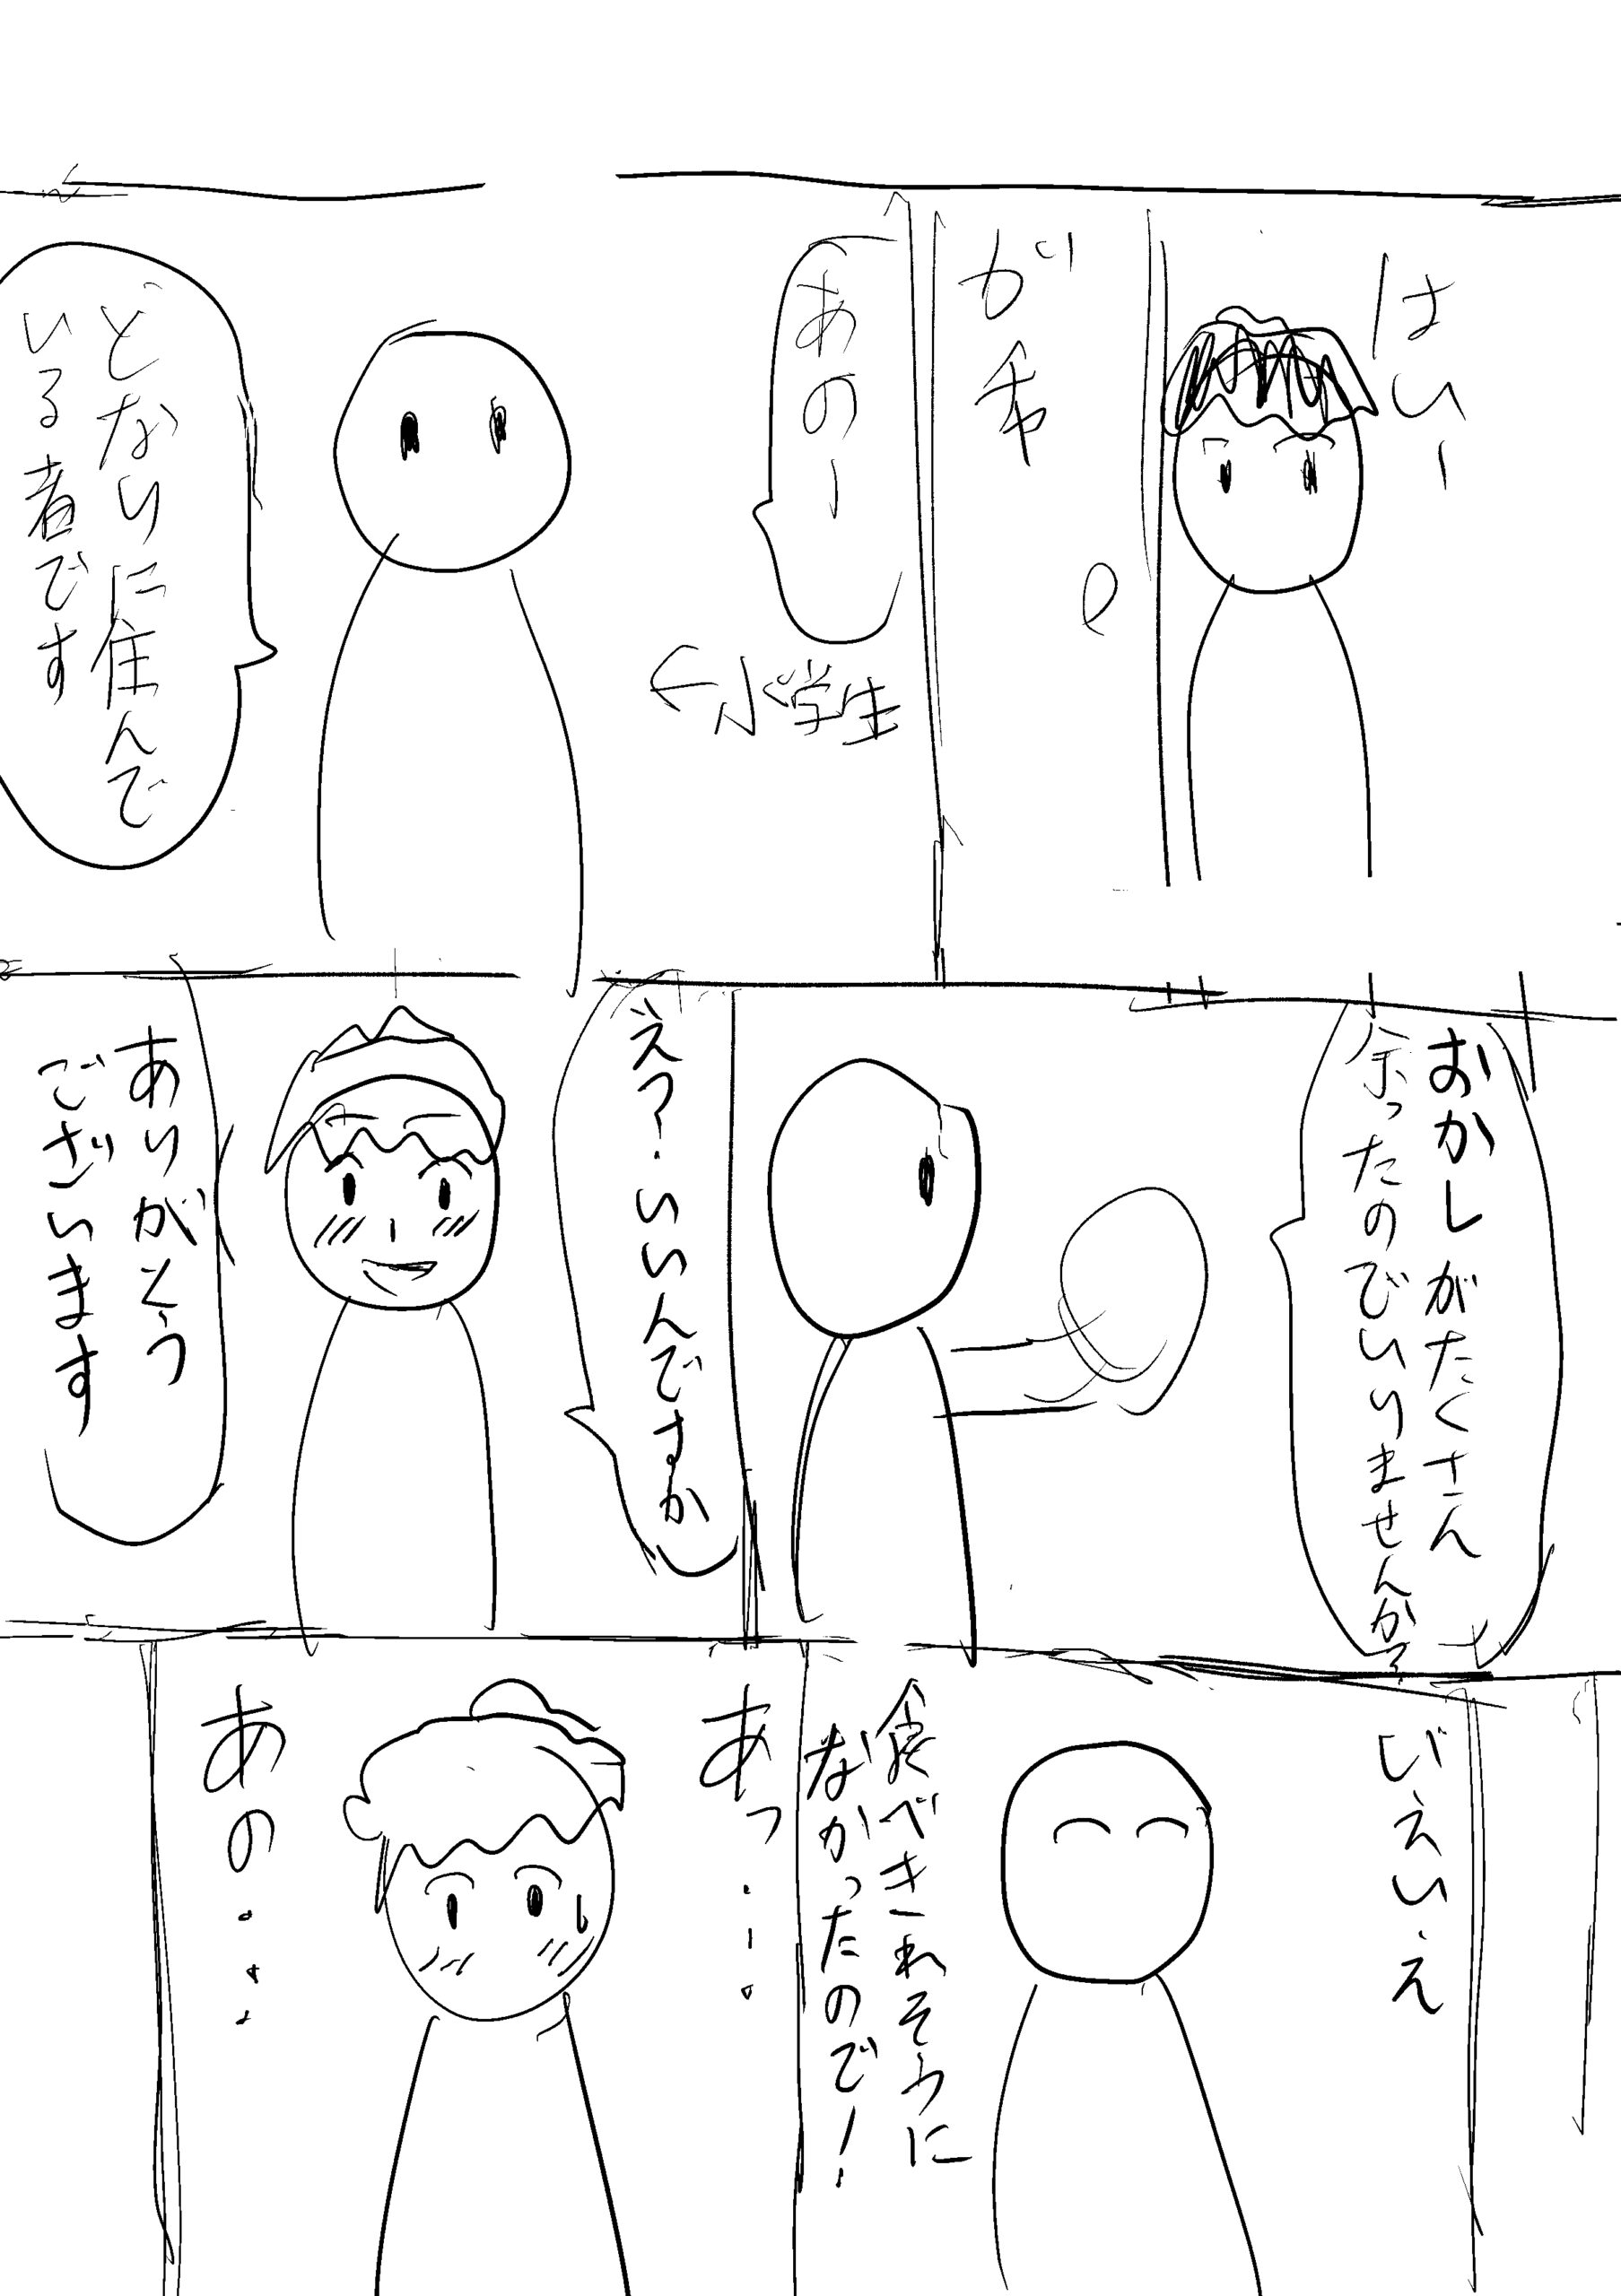 はいー
ガチャ
あのー
←小学生
となりに住んで
いる者です
おかしがたくさん
余ったのでいりませんか?
えっ!いいんですか
ありがとう
ございます
いえいえ
食べきれそうに
なかったので!
あっ...
あの...